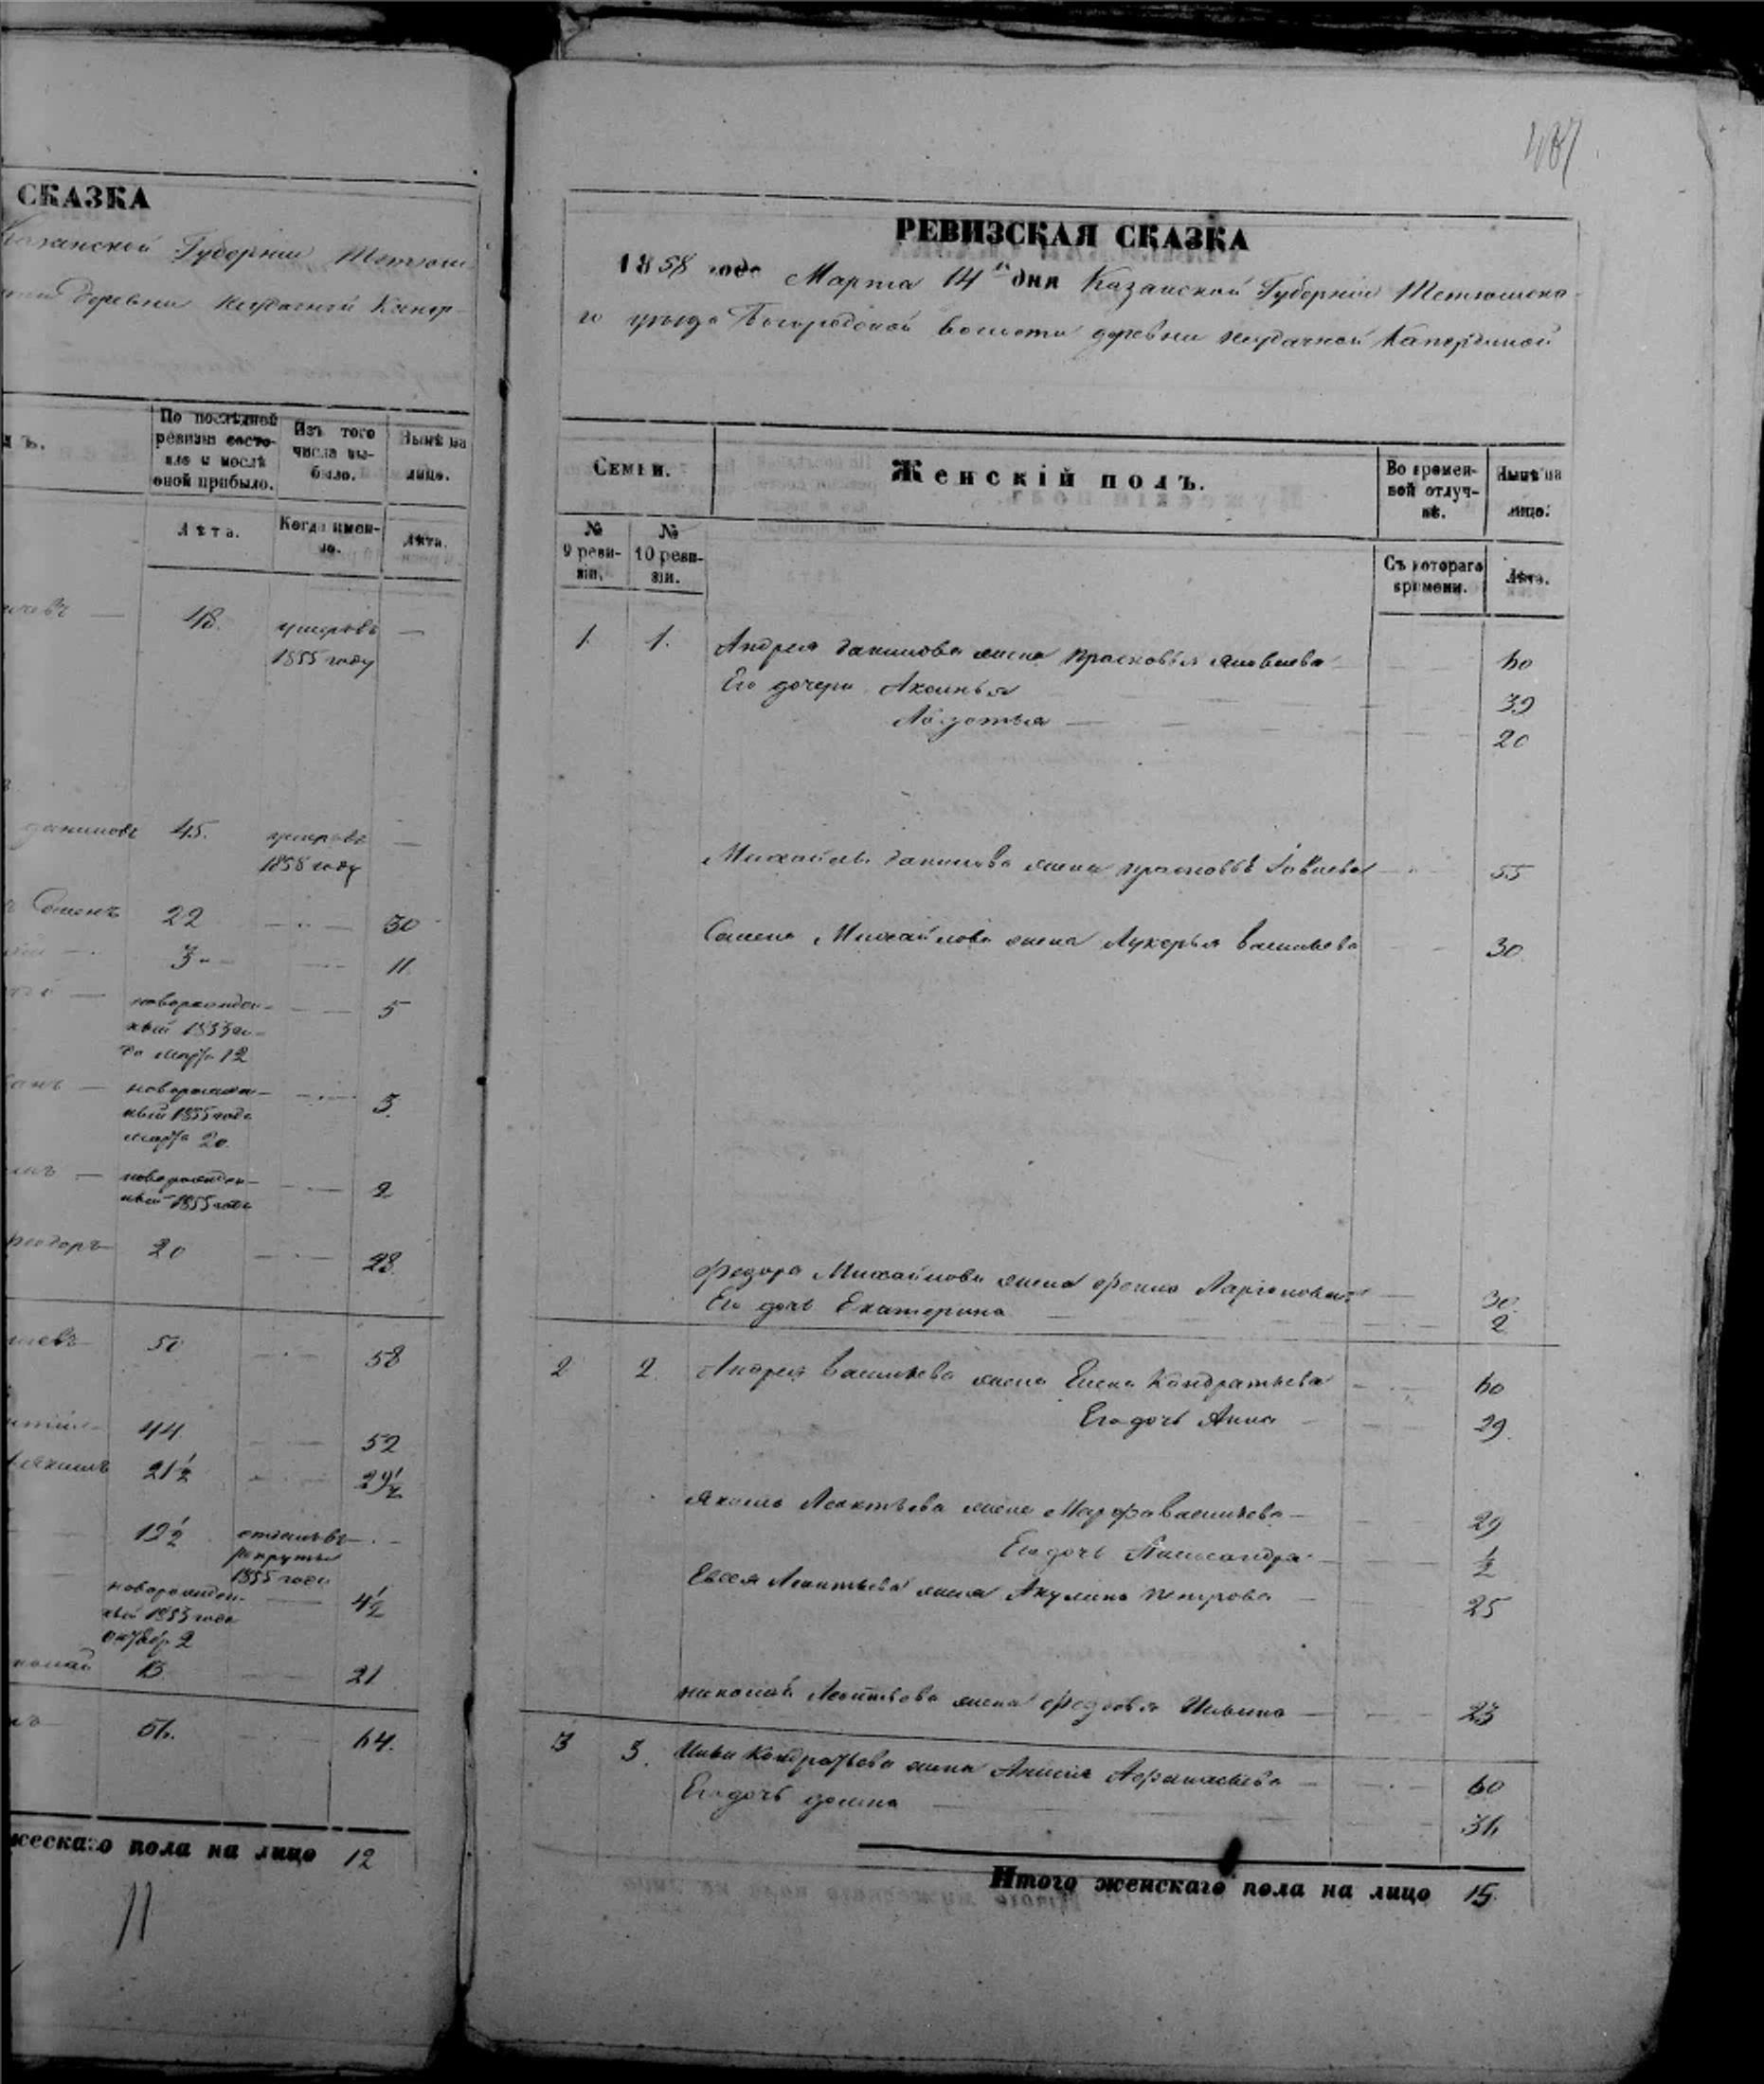 СКАЗКА
Казанской Губернiи Тетюш-
деревни неудачной Капер-
По послѣдней
ревизiи состо-
яло и послѣ
оной прибыло.
Изъ того
числа вы-
было.
Нынѣ на
лицо.
Лѣта.
Когда имен-
но.
Лѣта.
48. умеръ въ —
1855 году
данилов 45. умеръ въ —
1858 году
Семенъ 22 30
3 11
новорожден- 5
ный 1853 го-
да марта 12
новорожден- 3.
ный 1855 года
марта 20.
новорожден- 2
ный 1855 года
Феодоръ 20 28.
50 58
44 52
21½ 29½
12½ отданъ въ
рекруты
1855 года
новорожден- 4½
ный 1853 года
октябр. 2
13. 21
56. 64.
жескаго пола на лицо 12
11
РЕВИЗСКАЯ СКАЗКА
1858 года Марта 14 дня Казанской Губернiи Тетюшска-
го уѣзда Богородской волости деревни неудачной Капердиной
Семьи.
Женскiй полъ.
Во времен-
ной отлуч-
кѣ.
Нынѣ на
лицо.
№
9 реви-
зiи.
№
10 реви-
зiи.
Съ котораго
времени.
Лѣта.
1. 1. Андрея данилова жена Прасковья Яковлева 60
Его дочери Аксинья 39
Авдотья 20
Михайлы данилова жена прасковья 55
Семена Михайлова жена Лукерья васильева 30.
Федора Михайлова жена Фекла Ларiонова 30.
Его дочь Екатерина 2
2 2. Андрея васильева жена Елена Кондратьева 60
Его дочь Анна 29.
якима Леонтьева жена Марфа васильева 29
Его дочь Александра ½
Евсея Леонтьева жена Акулина петрова 25
николай Леонтьева жена Федосья Ильина 23
3 3. Ильи Кондратьева жена Анисья Афанасьева 60
Его дочь домна 36
Итого женскаго пола на лицо 15.